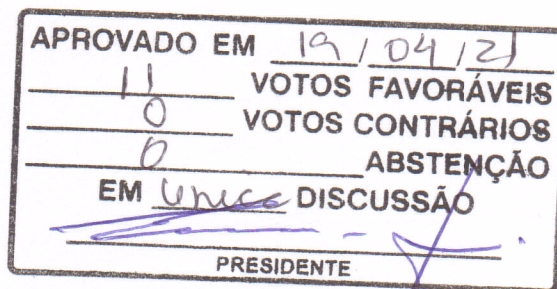 APROVADO EM 19 / 04 / 21
11 VOTOS FAVORÁVEIS
0 VOTOS CONTRÁRIOS
0 ABSTENÇÃO
EM única DISCUSSÃO
PRESIDENTE